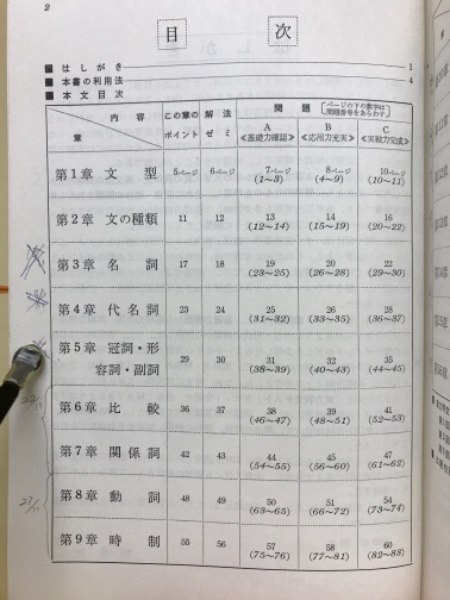 2
目 次
■ はしがき 1
■ 本書の利用法 4
■ 本文目次
内容 この章の 解法 問題 〔ページの下の数字は
章 ポイント ゼミ A B C 問題番号をあらわす〕
≪基礎力確認≫ ≪応用力充実≫ ≪実戦力完成≫
第1章 文型 5ページ 6ページ 7ページ 8ページ 10ページ
(1~3) (4~9) (10~11)
第2章 文の種類 11 12 13 14 16
(12~14) (15~19) (20~22)
第3章 名詞 17 18 19 20 22
(23~25) (26~28) (29~30)
第4章 代名詞 23 24 25 26 28
(31~32) (33~35) (36~37)
第5章 冠詞・形
容詞・副詞 29 30 31 32 35
(38~39) (40~43) (44~45)
第6章 比較 36 37 38 39 41
(46~47) (48~51) (52~53)
第7章 関係詞 42 43 44 45 47
(54~55) (56~60) (61~62)
第8章 動詞 48 49 50 51 54
(63~65) (66~72) (73~74)
第9章 時制 55 56 57 58 60
(75~76) (77~81) (82~83)